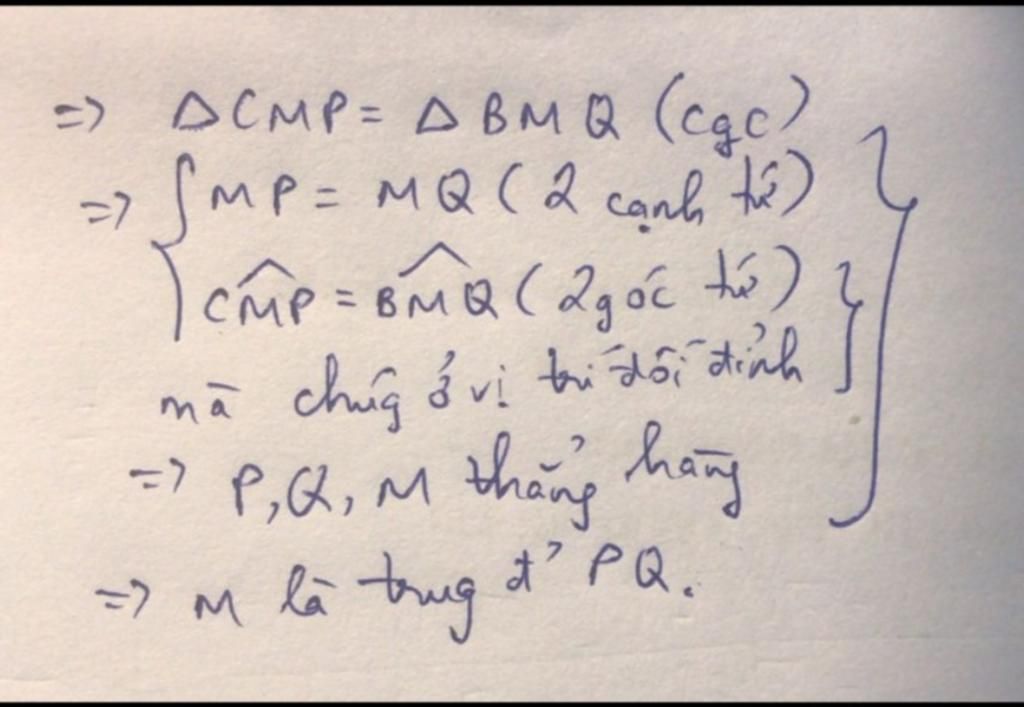 => Δ CMP = Δ BMQ (cgc)
=> { MP = MQ (2 cạnh tứ)
CMP = BMQ (2 góc tứ)
mà chúg ở vị trí đối đỉnh
=> P, Q, M thẳng hàng
=> M là trug đ' PQ.